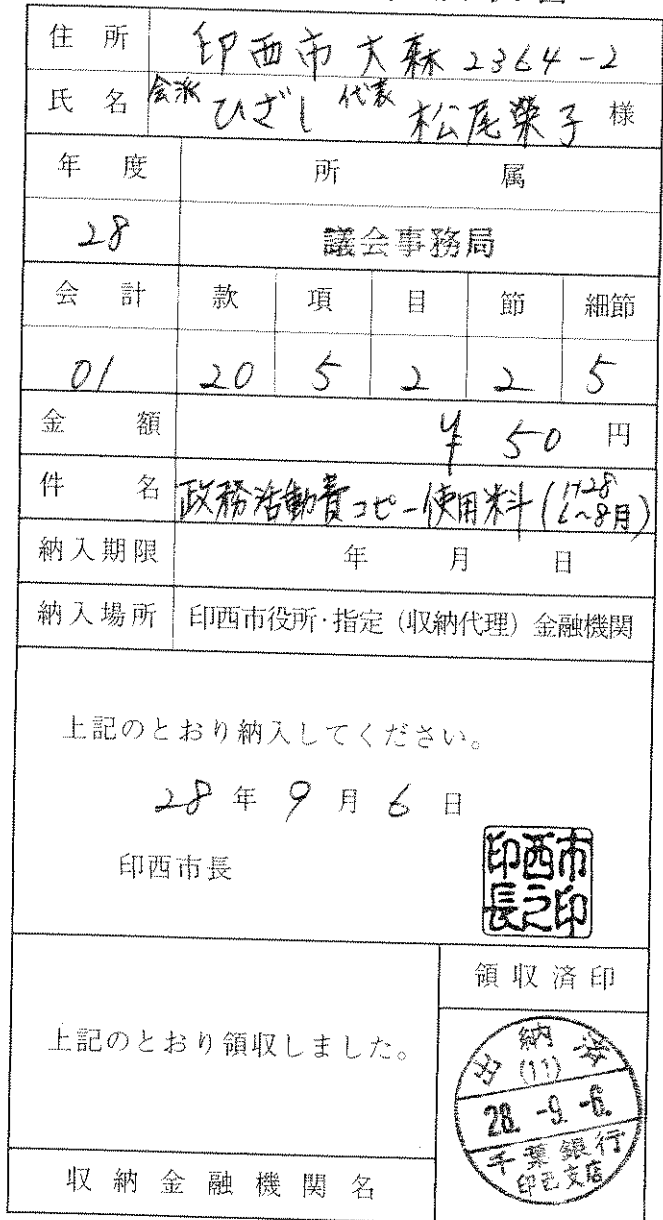 住所 印西市大森2364-2
氏名 会派 ひざし 代表 松尾榮子 様
年度 所属
28 議会事務局
会計 款 項 目 節 細節
01 20 5 2 2 5
金額 ¥50円
件名 政務活動費コピー使用料(H28 6~8月)
納入期限 年 月 日
納入場所 印西市役所・指定(収納代理)金融機関
上記のとおり納入してください。
28年9月6日
印西市長
印西市長之印
領収済印
上記のとおり領収しました。
出納済
(11)
28.-9.-6.
千葉銀行
支店
収納金融機関名